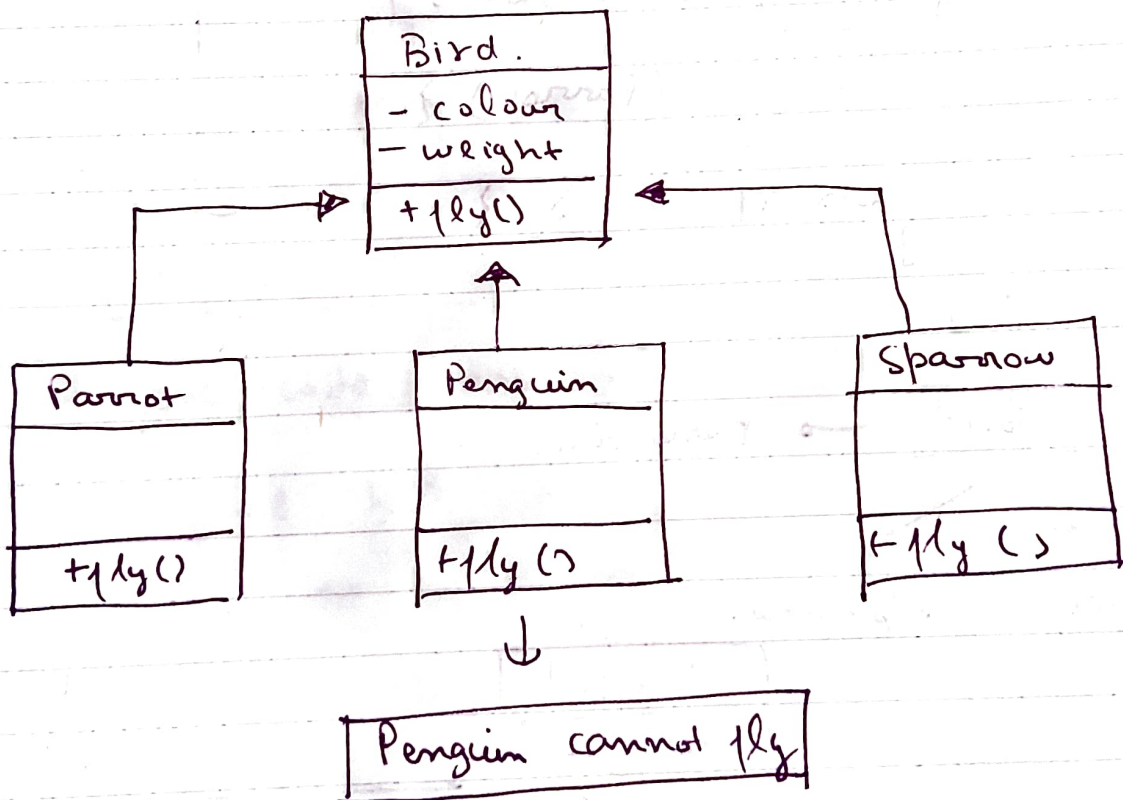 Bird.
- colour
- weight
+fly()
Parrot
+fly()
Penguin
+fly()
Sparrow
+fly ()
Penguin cannot fly